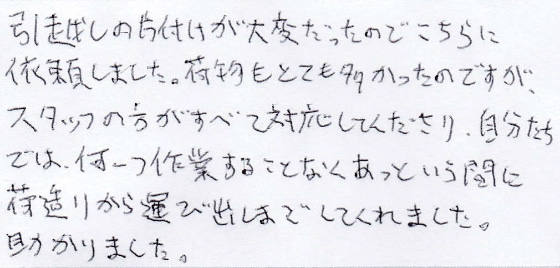 引越しの片付けが大変だったのでこちらに
依頼しました。荷物もとても多かったのですが、
スタッフの方がすべて対応してくださり、自分たち
では、何一つ作業することなくあっという間に
荷造りから運び出しまでしてくれました。
助かりました。